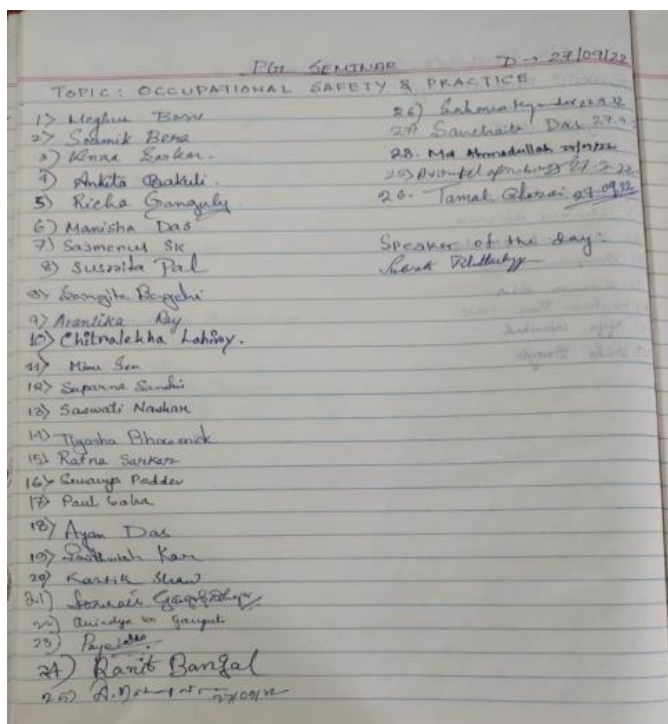 PG SEMINAR D → 27/09/22
TOPIC: OCCUPATIONAL SAFETY & PRACTICE
1) Meghna Basu
2) Soumik Bera
3) Sarkar.
4) Ankita Bakuli
5) Richa Ganguly
6) Manisha Das
7) Sasmenur Sk
8) Susmita Pal
8) Sangita Bagchi
9) Avantika Ray
10) Chitralekha Lahiry.
11) Mimi Sen
12) Suparna
13) Saswati Naskar
14) Tiyasha Bhowmick
15) Ratna Sarkar
16) Poddar
17) Paul Saha
18) Ayan Das
19) Kar
20) Kartik Shaw
21)
22) Anindya Ganguli
23) Payel
24) Ranit Bangal
25) 27/09/22
26) 27.9.22
27) Sanchaita Das 27.9.
28. Md Ahmadullah 27/09/22
29)
20. Tamal Ghorai 27.09.22
Speaker of the day: